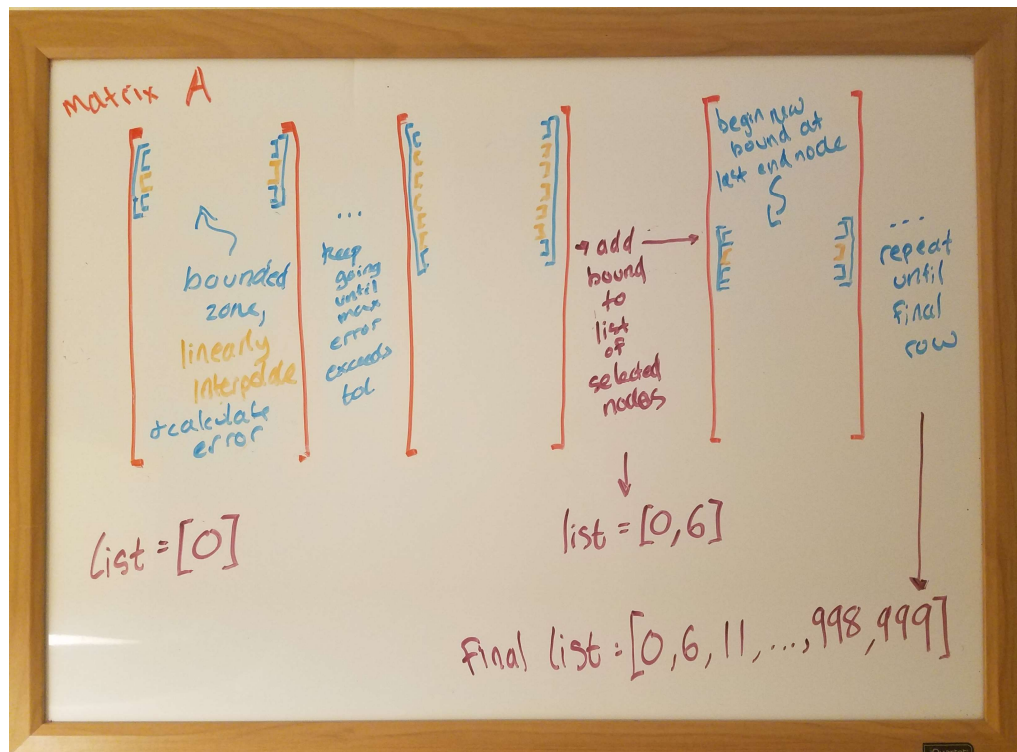 matrix A
bounded
zone,
linearly
interpolate
+calculate
error
...
keep
going
until
max
error
exceeds
tol
→ add →
bound
to
list
of
selected
nodes
begin new
bound at
last end node
...
repeat
until
final
row
list = [0]
list = [0,6]
final list = [0,6,11,...,998,999]